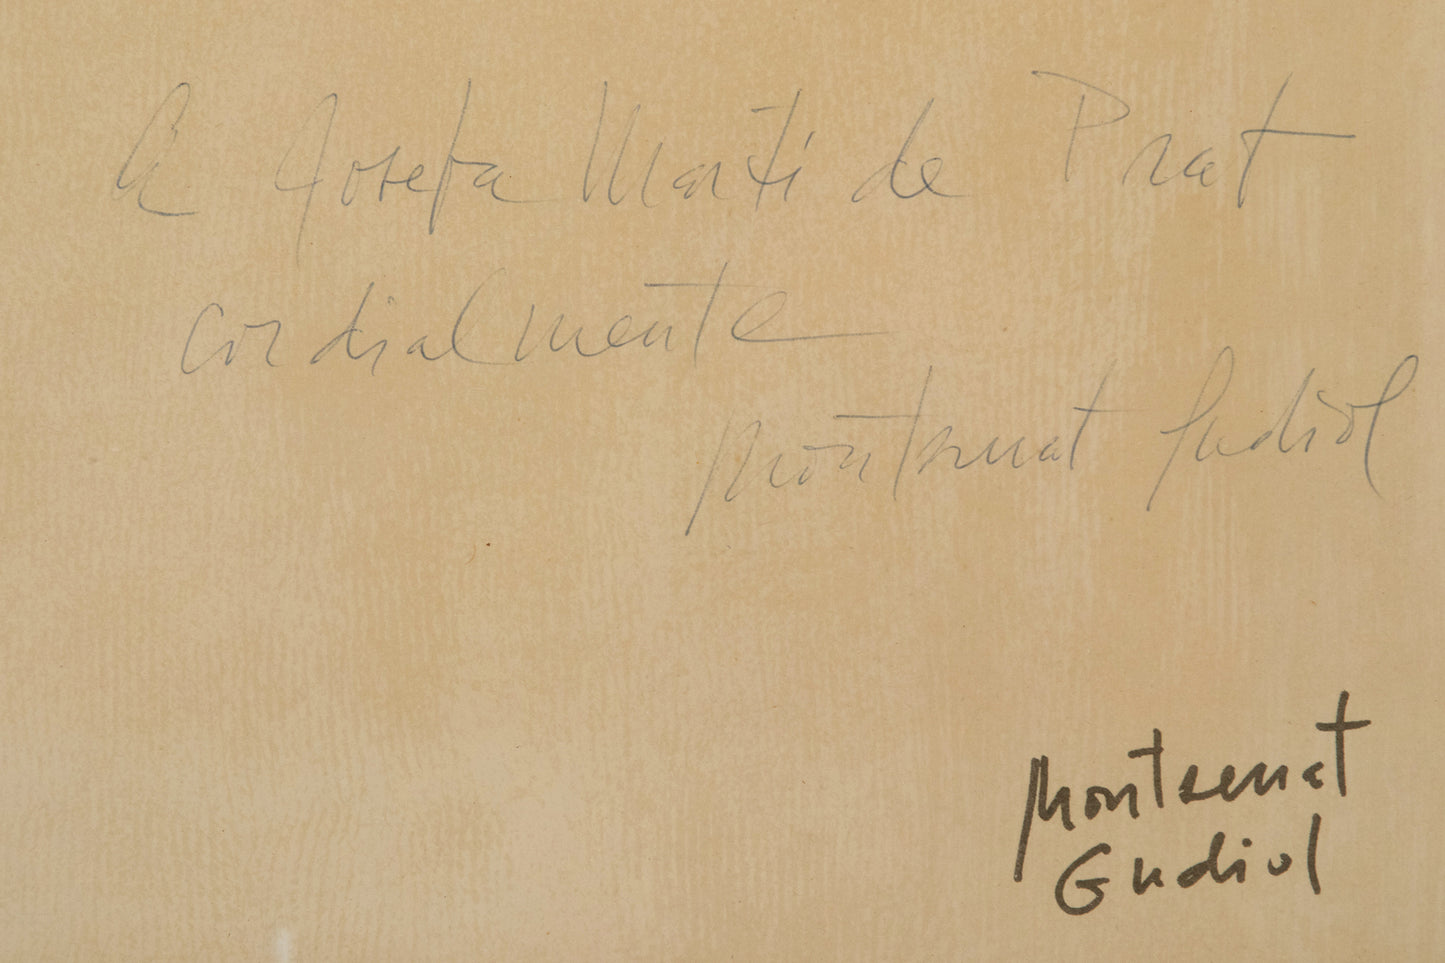 A Josefa Martí de Prat
cordialmente
Montserrat Gudiol
Montserrat
Gudiol